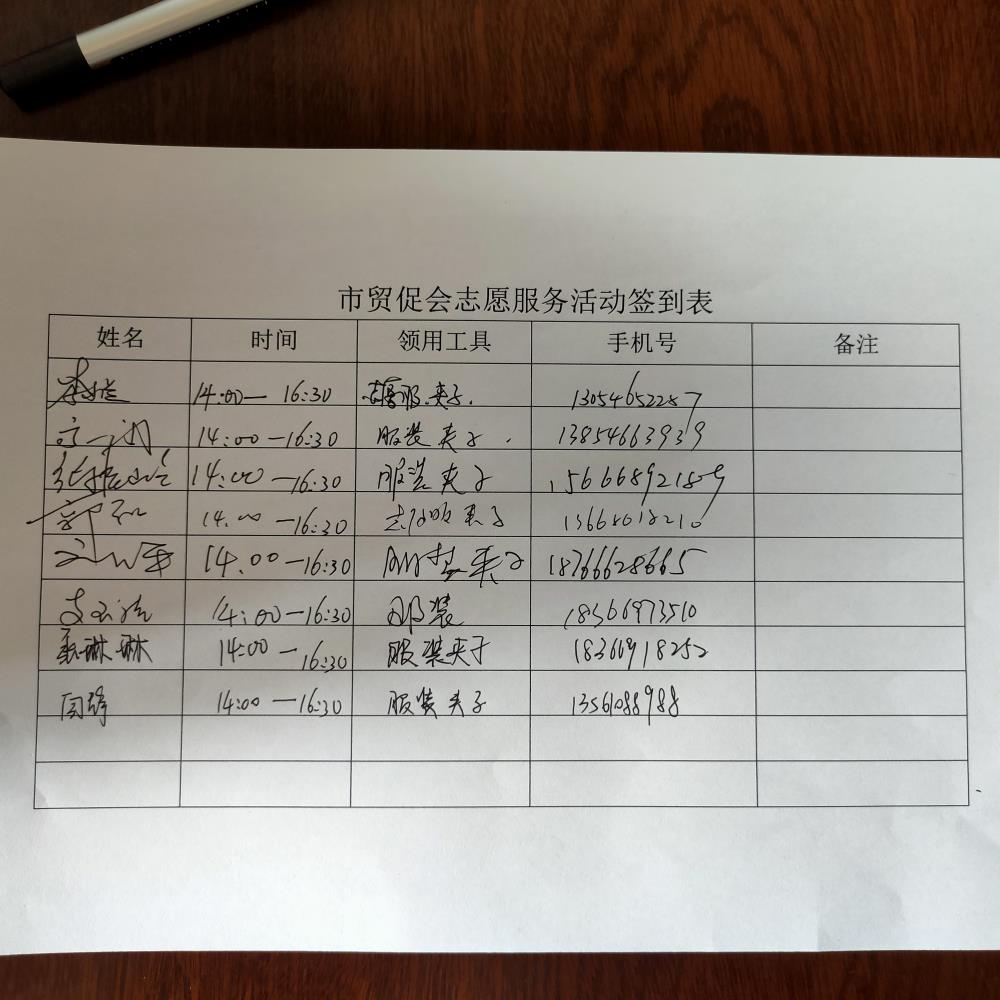 市贸促会志愿服务活动签到表
姓名 时间 领用工具 手机号 备注
14:00— 16:30 服.夹子.
14:00—16:30 服装夹子. 13854663939
14:00—16:30 服装夹子 15666892189
14:00—16:30 夹子
14:00—16:30 服装夹子 18766628665
14:00—16:30 服装 18366973510
琳琳 14:00—16:30 服装夹子 18366918252
闫 14:00—16:30 服装夹子 13561088988